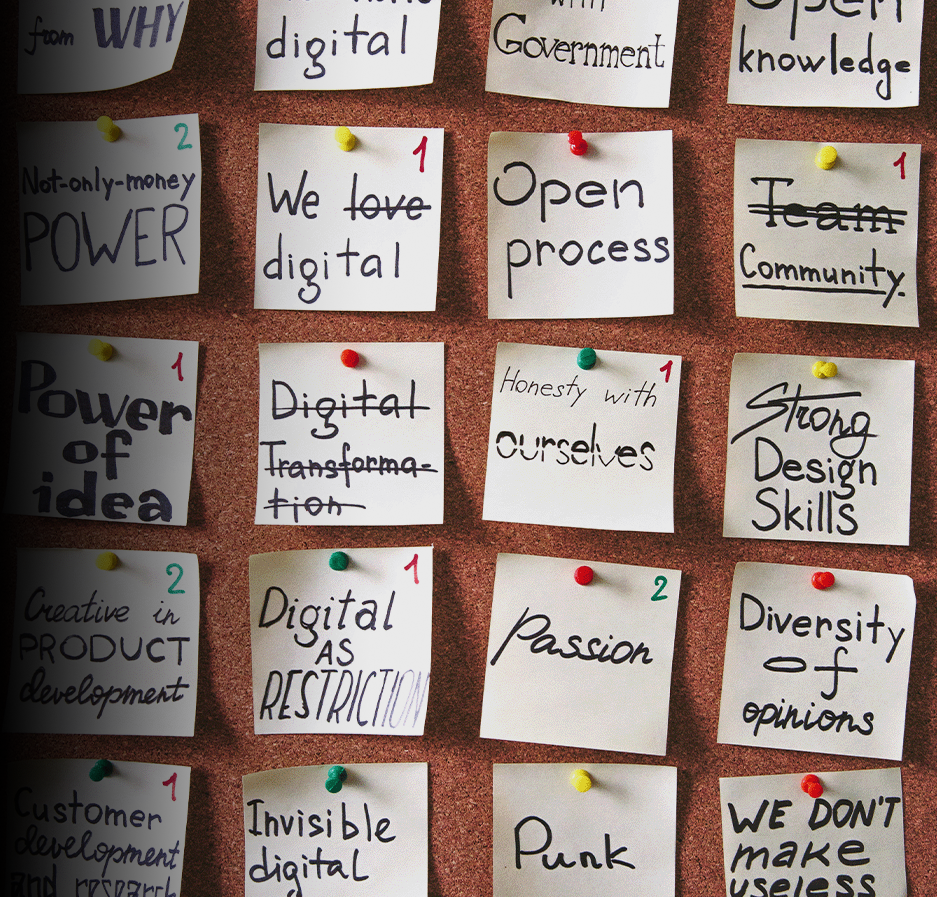 from WHY
digital
with
Government
Open
knowledge
2
Not-only-money
POWER
1
We love
digital
Open
process
1
Team
Community.
1
Power
of
idea
Digital
Transforma-
tion
1
Honesty with
ourselves
Strong
Design
Skills
2
Creative in
PRODUCT
development
1
Digital
AS
RESTRICTION
2
Passion
Diversity
of
opinions
1
Customer
development
and research
Invisible
digital
Punk
WE DON'T
make
useless